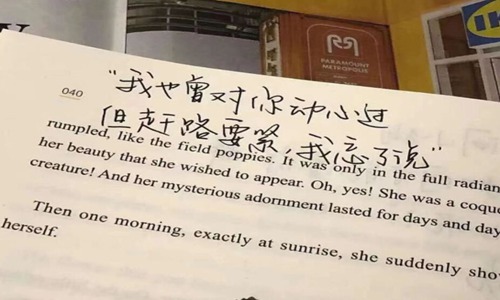 PARAMOUNT
METROPOLIS
040
"我也曾对你动心过
但赶路要紧,我忘了说"
rumpled, like the field poppies. It was only in the full radian
her beauty that she wished to appear. Oh, yes! She was a coque
creature! And her mysterious adornment lasted for days and day
Then one morning, exactly at sunrise, she suddenly sho
herself.